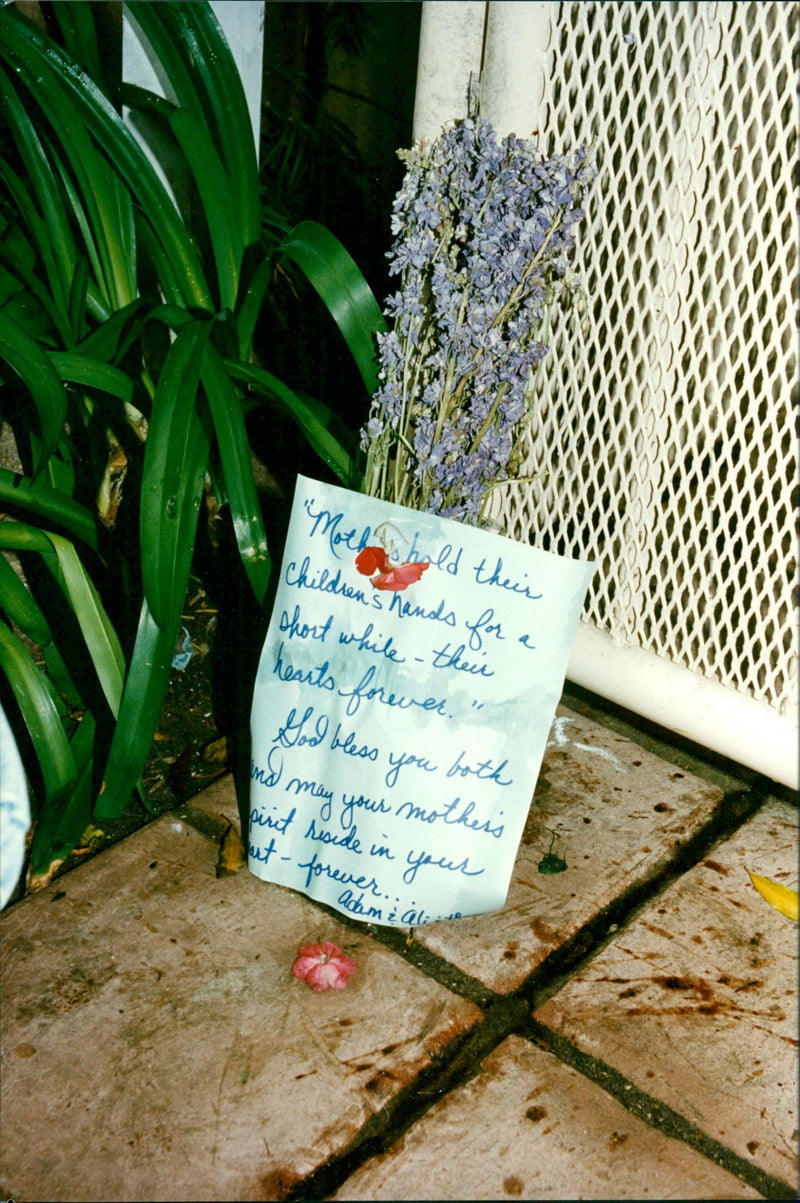 "Mothers hold their
children's hands for a
short while - their
hearts forever."
God bless you both
and may your mother's
spirit reside in your
heart - forever...
Adam &